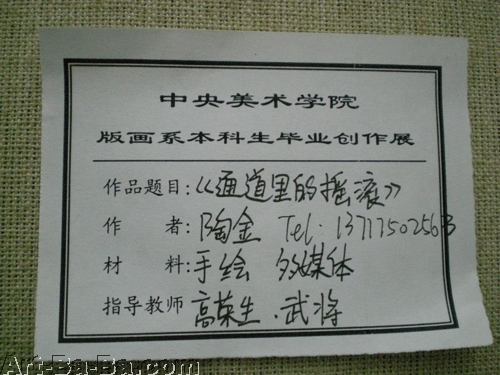 中央美术学院
版画系本科生毕业创作展
作品题目:《通道里的摇滚》
作 者:陶金 Tel: 13717502563
材 料:手绘 多媒体
指导教师 高荣生.武将
Art-Ba-Ba.com